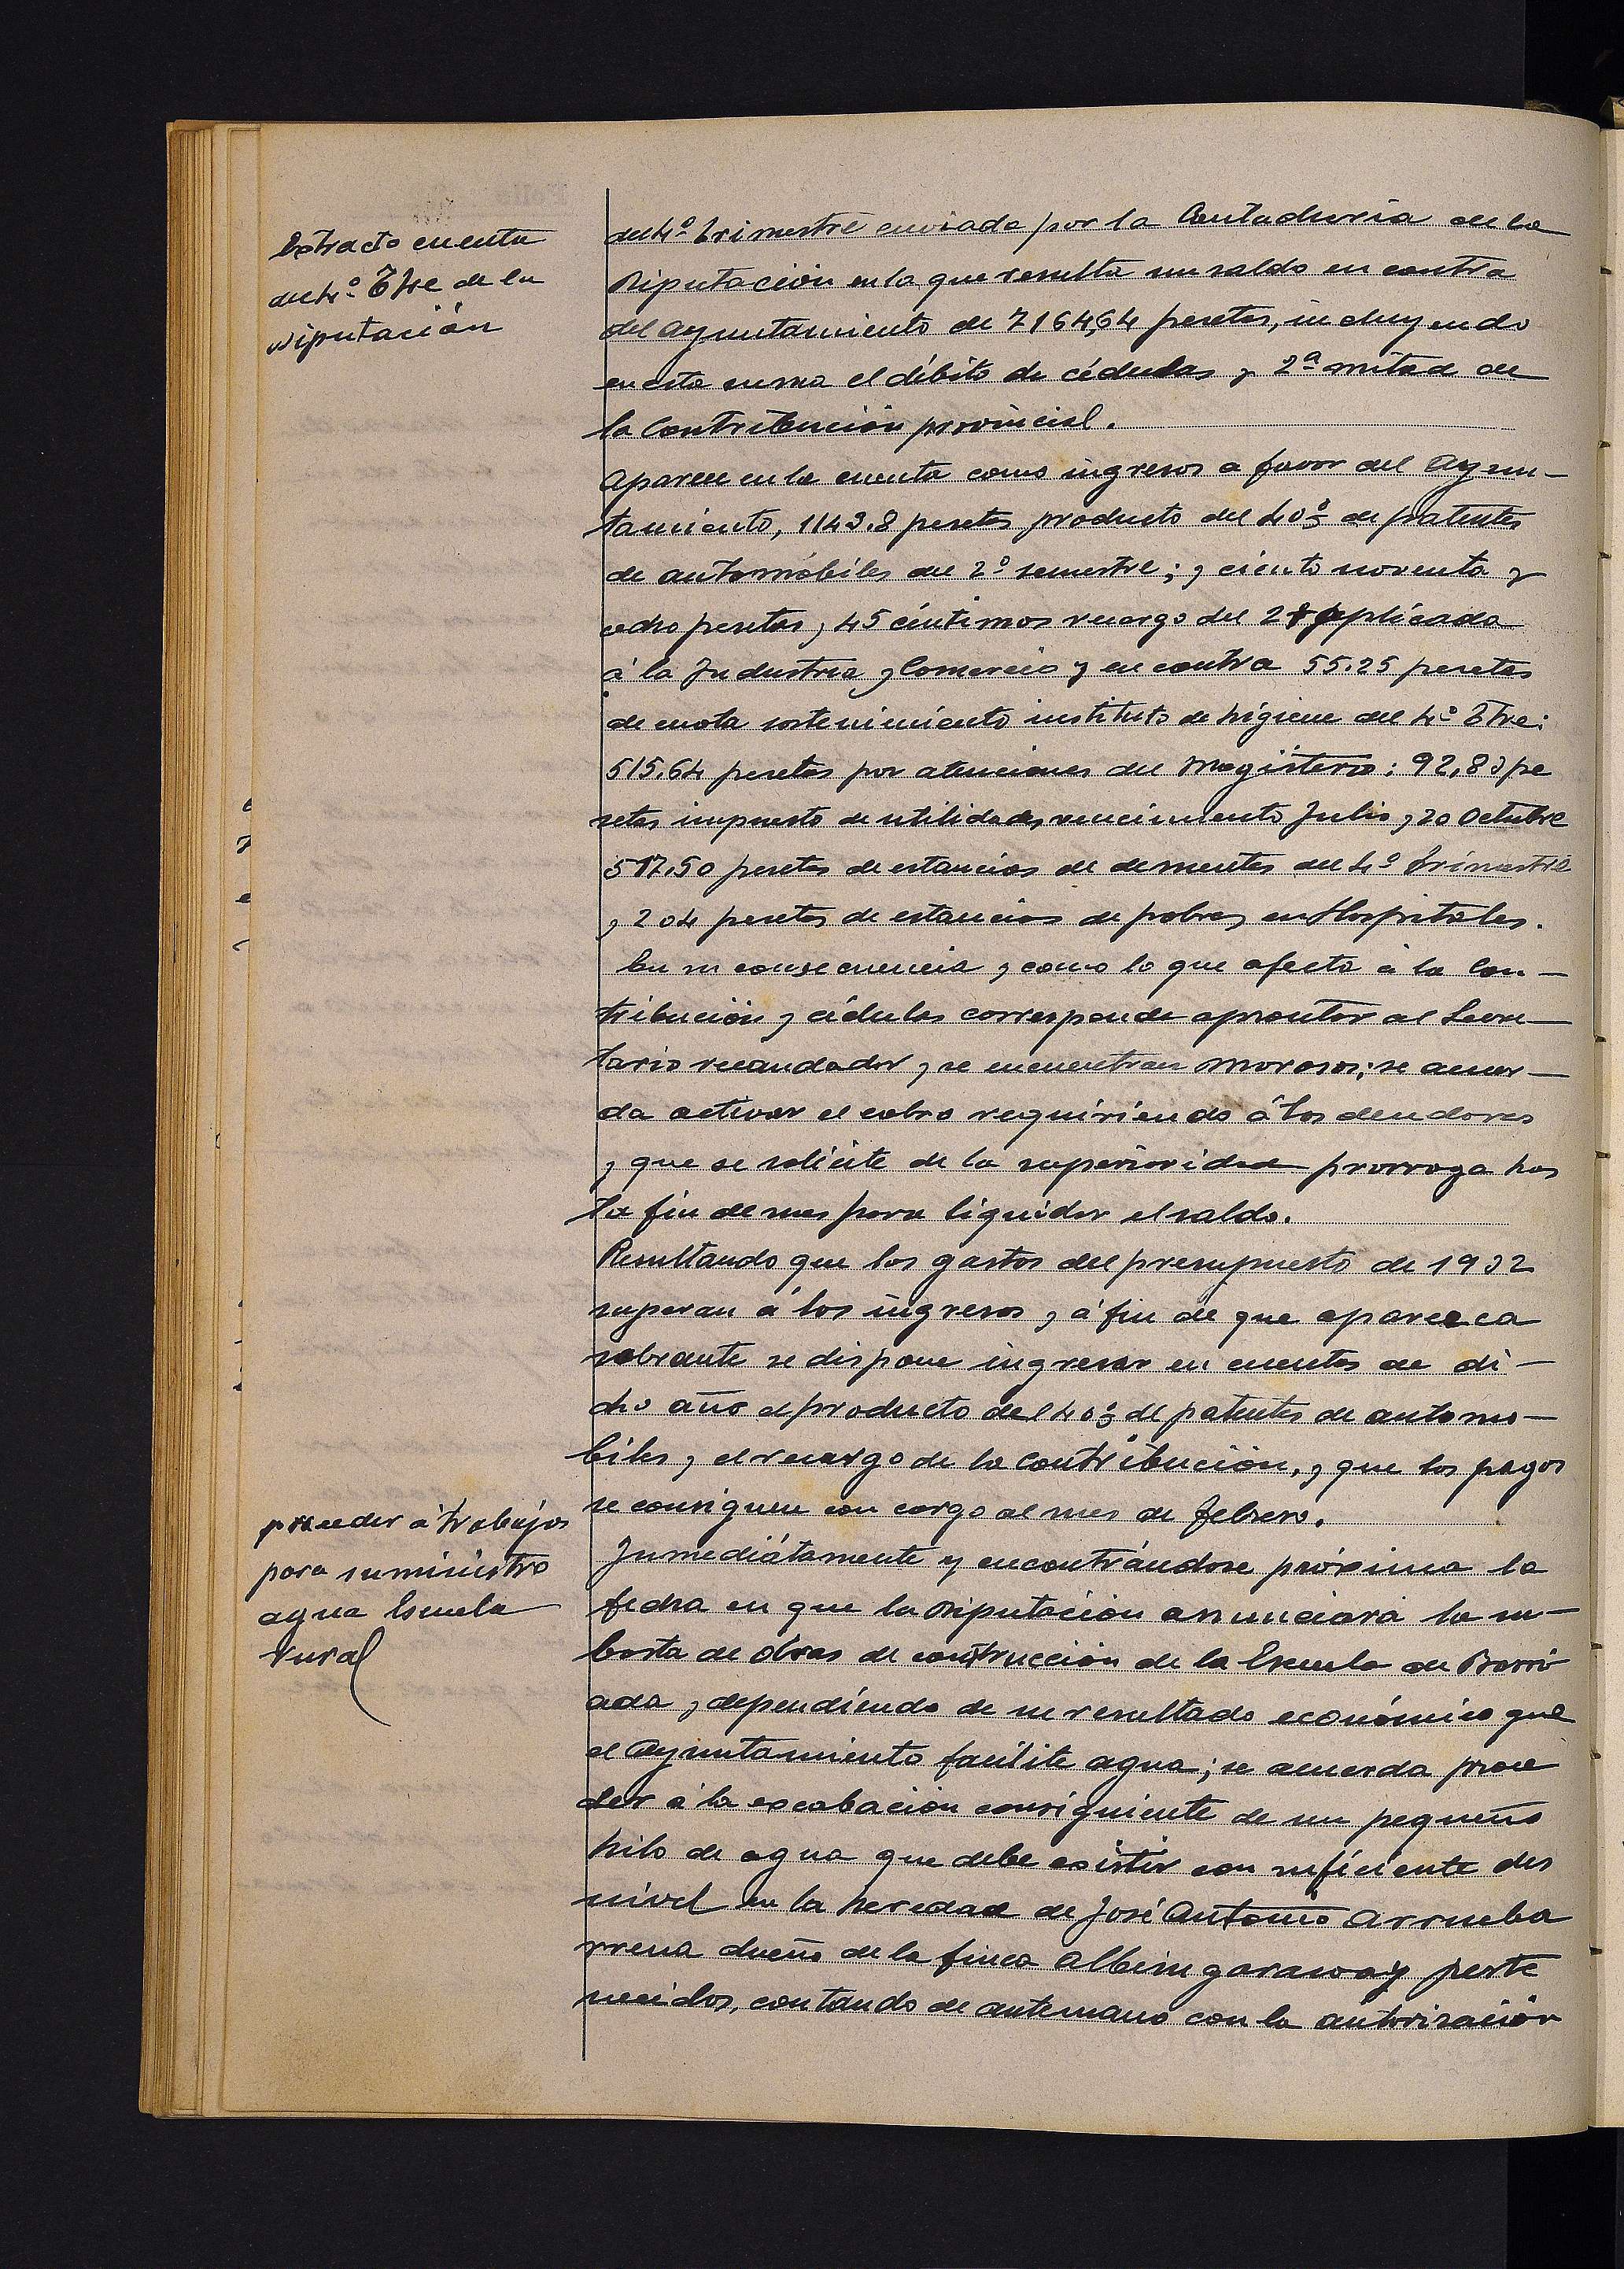 Extracto cuenta
del 4º Tre de la
Diputación
del 4º trimestre enviada por la Contaduría de la
Diputación en la que resulta un saldo en contra
del Ayuntamiento de 7164,64 pesetas, incluyendo
en esta suma el débito de cédulas y 2ª mitad de
la Contribución provincial.
Aparece en la cuenta como ingresos a favor del Ayun-
tamiento, 1143.8 pesetas producto del 40% de patentes
de automóbiles del 2º semestre; y ciento noventa y
ocho pesetas y 45 céntimos recargo del aplicada
á la Industria y Comercio y en contra 55.25 pesetas
de cuota sostenimiento instituto de higiene del 4º Tre:
515.64 pesetas por atenciones del Magisterio: 92,83 pe
setas impuesto de utilidades vencimiento Julio y 20 Octubre
517,50 pesetas de estancias de dementes del 4º trimestre
y 204 pesetas de estancias de pobres en Hospitales.
En su consecuencia y como lo que afecta á la Con-
tribución y cédulas corresponde aprontar al Secre-
tario recaudador y se encuentran morosos; se acuer-
da activar el cobro requiriendo á los deudores
y que se solicite de la superioridad prorroga has
ta fin de mes para liquidar el saldo.
Resultando que los gastos del presupuesto de 1932
superan á los ingresos y á fin de que aparezca
sobrante se dispone ingresar en cuentas de di-
cho año el producto del 40% de patentes de automo-
biles y el recargo de la contribución, y que los pagos
se consiguen con cargo al mes de febrero.
proceder á trabajos
para suministro
agua Escuela
rural
Inmediátamente y encontrándose próxima la
fecha en que la Diputación anunciará la su-
basta de obras de construcción de la Escuela de Barri
ada y dependiendo de su resultado económico que
el Ayuntamiento facilite agua; se acuerda proce
der á la escabación consiguiente de un pequeño
hilo de agua que debe existir con suficiente des
nivel en la heredad de José Antonio Arrueba
rrena dueño de la finca Albeingaraway perte
necidos, contando de antemano con la autorización